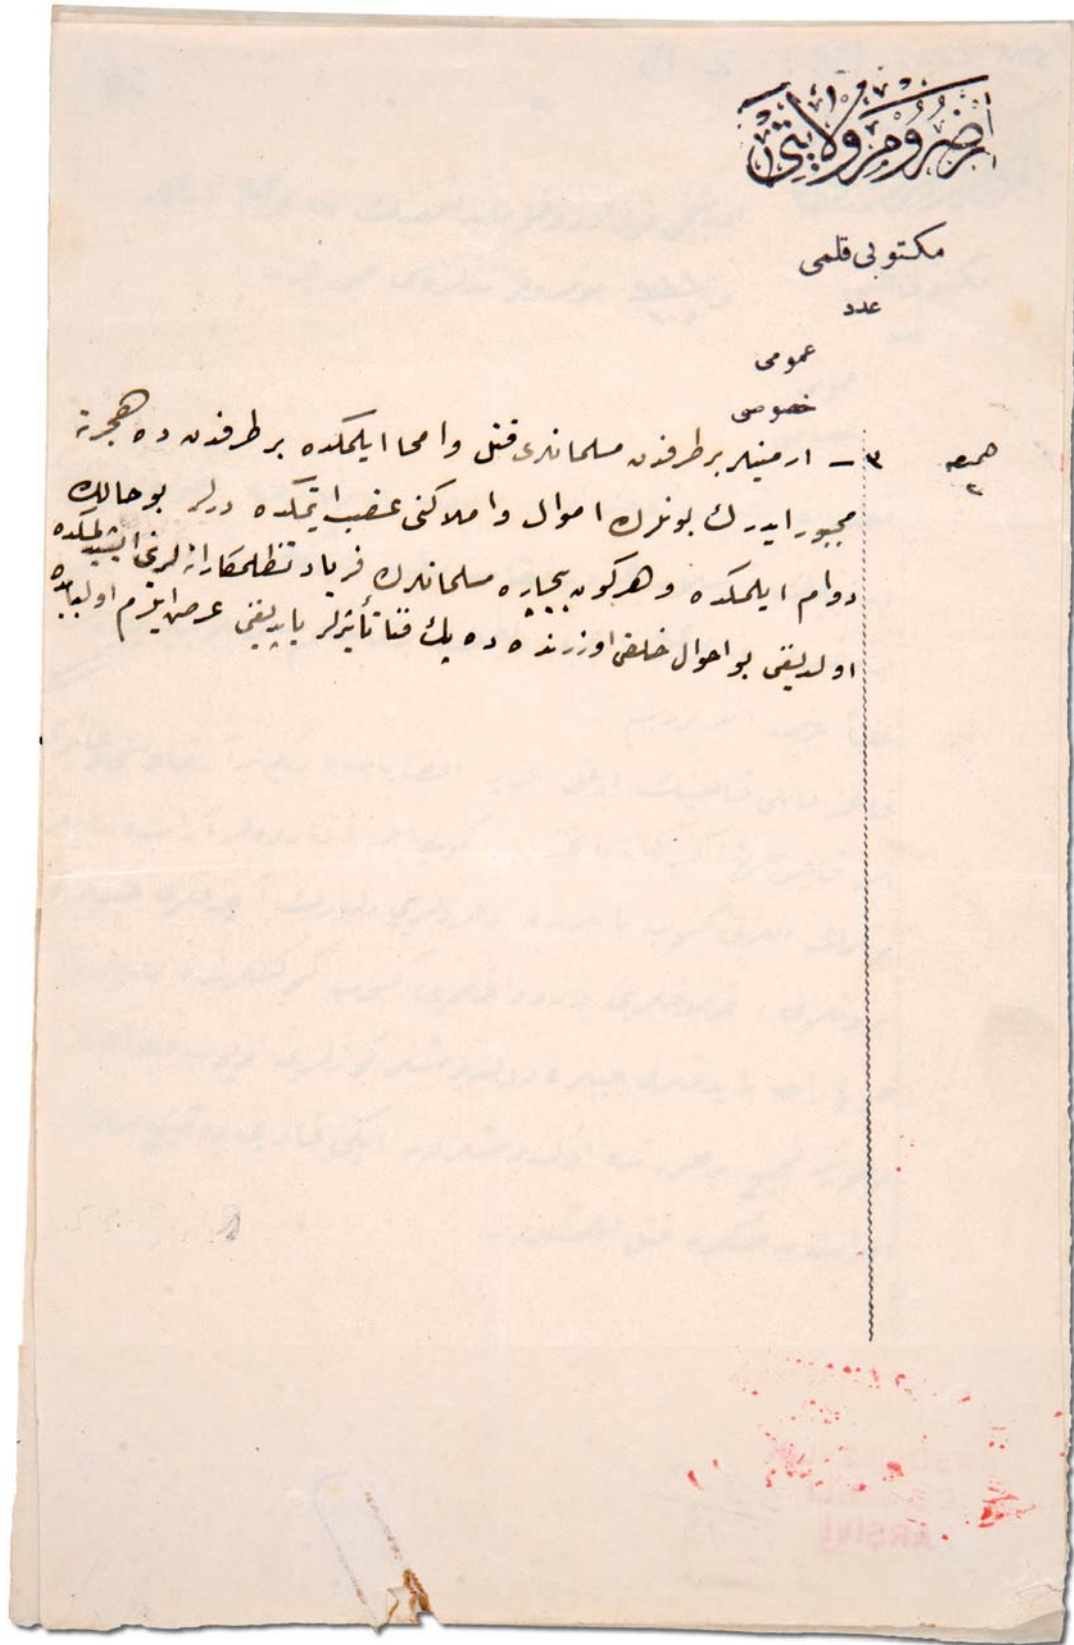 ارضروم ولايتى
مكتوبى قلمى
عدد
عمومى
خصوصى
٣ – ارمنيلر بر طرفدن مسلمانلرى قتل و امحا ايلمكده بر طرفدن ده هجرته
مجبور ايدرك بونلرك اموال و املاكنى غصب ايتمكده درلر بو حالك
دوام ايلمكده و هركون بيچاره مسلمانلرك فرياد تظلمكارانه لرينى ايشيدلمكده
اولديغى بو احوال خلق اوزرنده ده پك فنا تأثيرلر ياپديغى عرض ايلرم اولبابده
ARŞİVİ